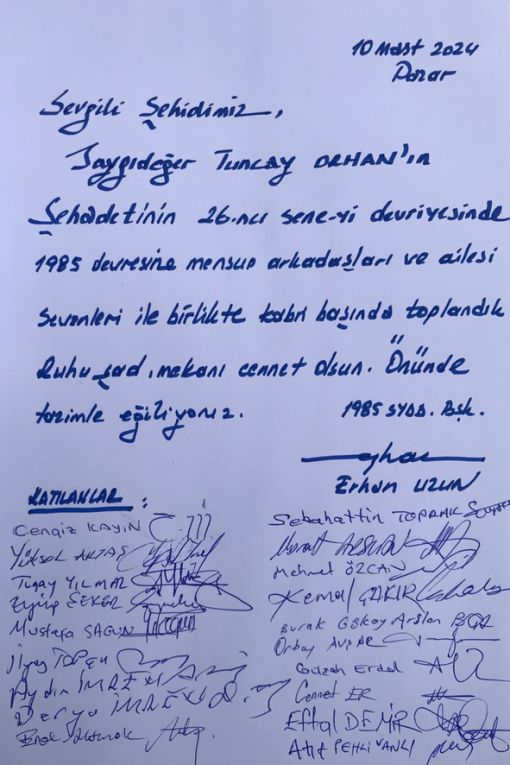 10 Mart 2024
Pazar
Sevgili Şehidimiz,
Saygıdeğer TUNCAY ORHAN'ın
Şehadetinin 26.ncı sene-yi devriyesinde
1985 devresine mensup arkadaşları ve ailesi
sevenleri ile birlikte kabri başında toplandık
Ruhu şad, mekanı cennet olsun. Önünde
tazimle eğiliyoruz.
1985 Bşk.
Erhan UZUN
KATILANLAR :
Cengiz KAYIN
Yüksel AKTAŞ
Tugay YILMAZ
Eyüp ŞEKER
Mustafa SAGUN
İlyas
Aydın İMREN
Derya İMREN
Sebahattin TOPRAK
Murat ARSLAN
Mehmet ÖZCAN
Kemal ÇAKIR
Burak Gökay Arslan
Orbay
Erdal
Cennet ER
Eftal DEMİR
Atıf PEHLİVANLI